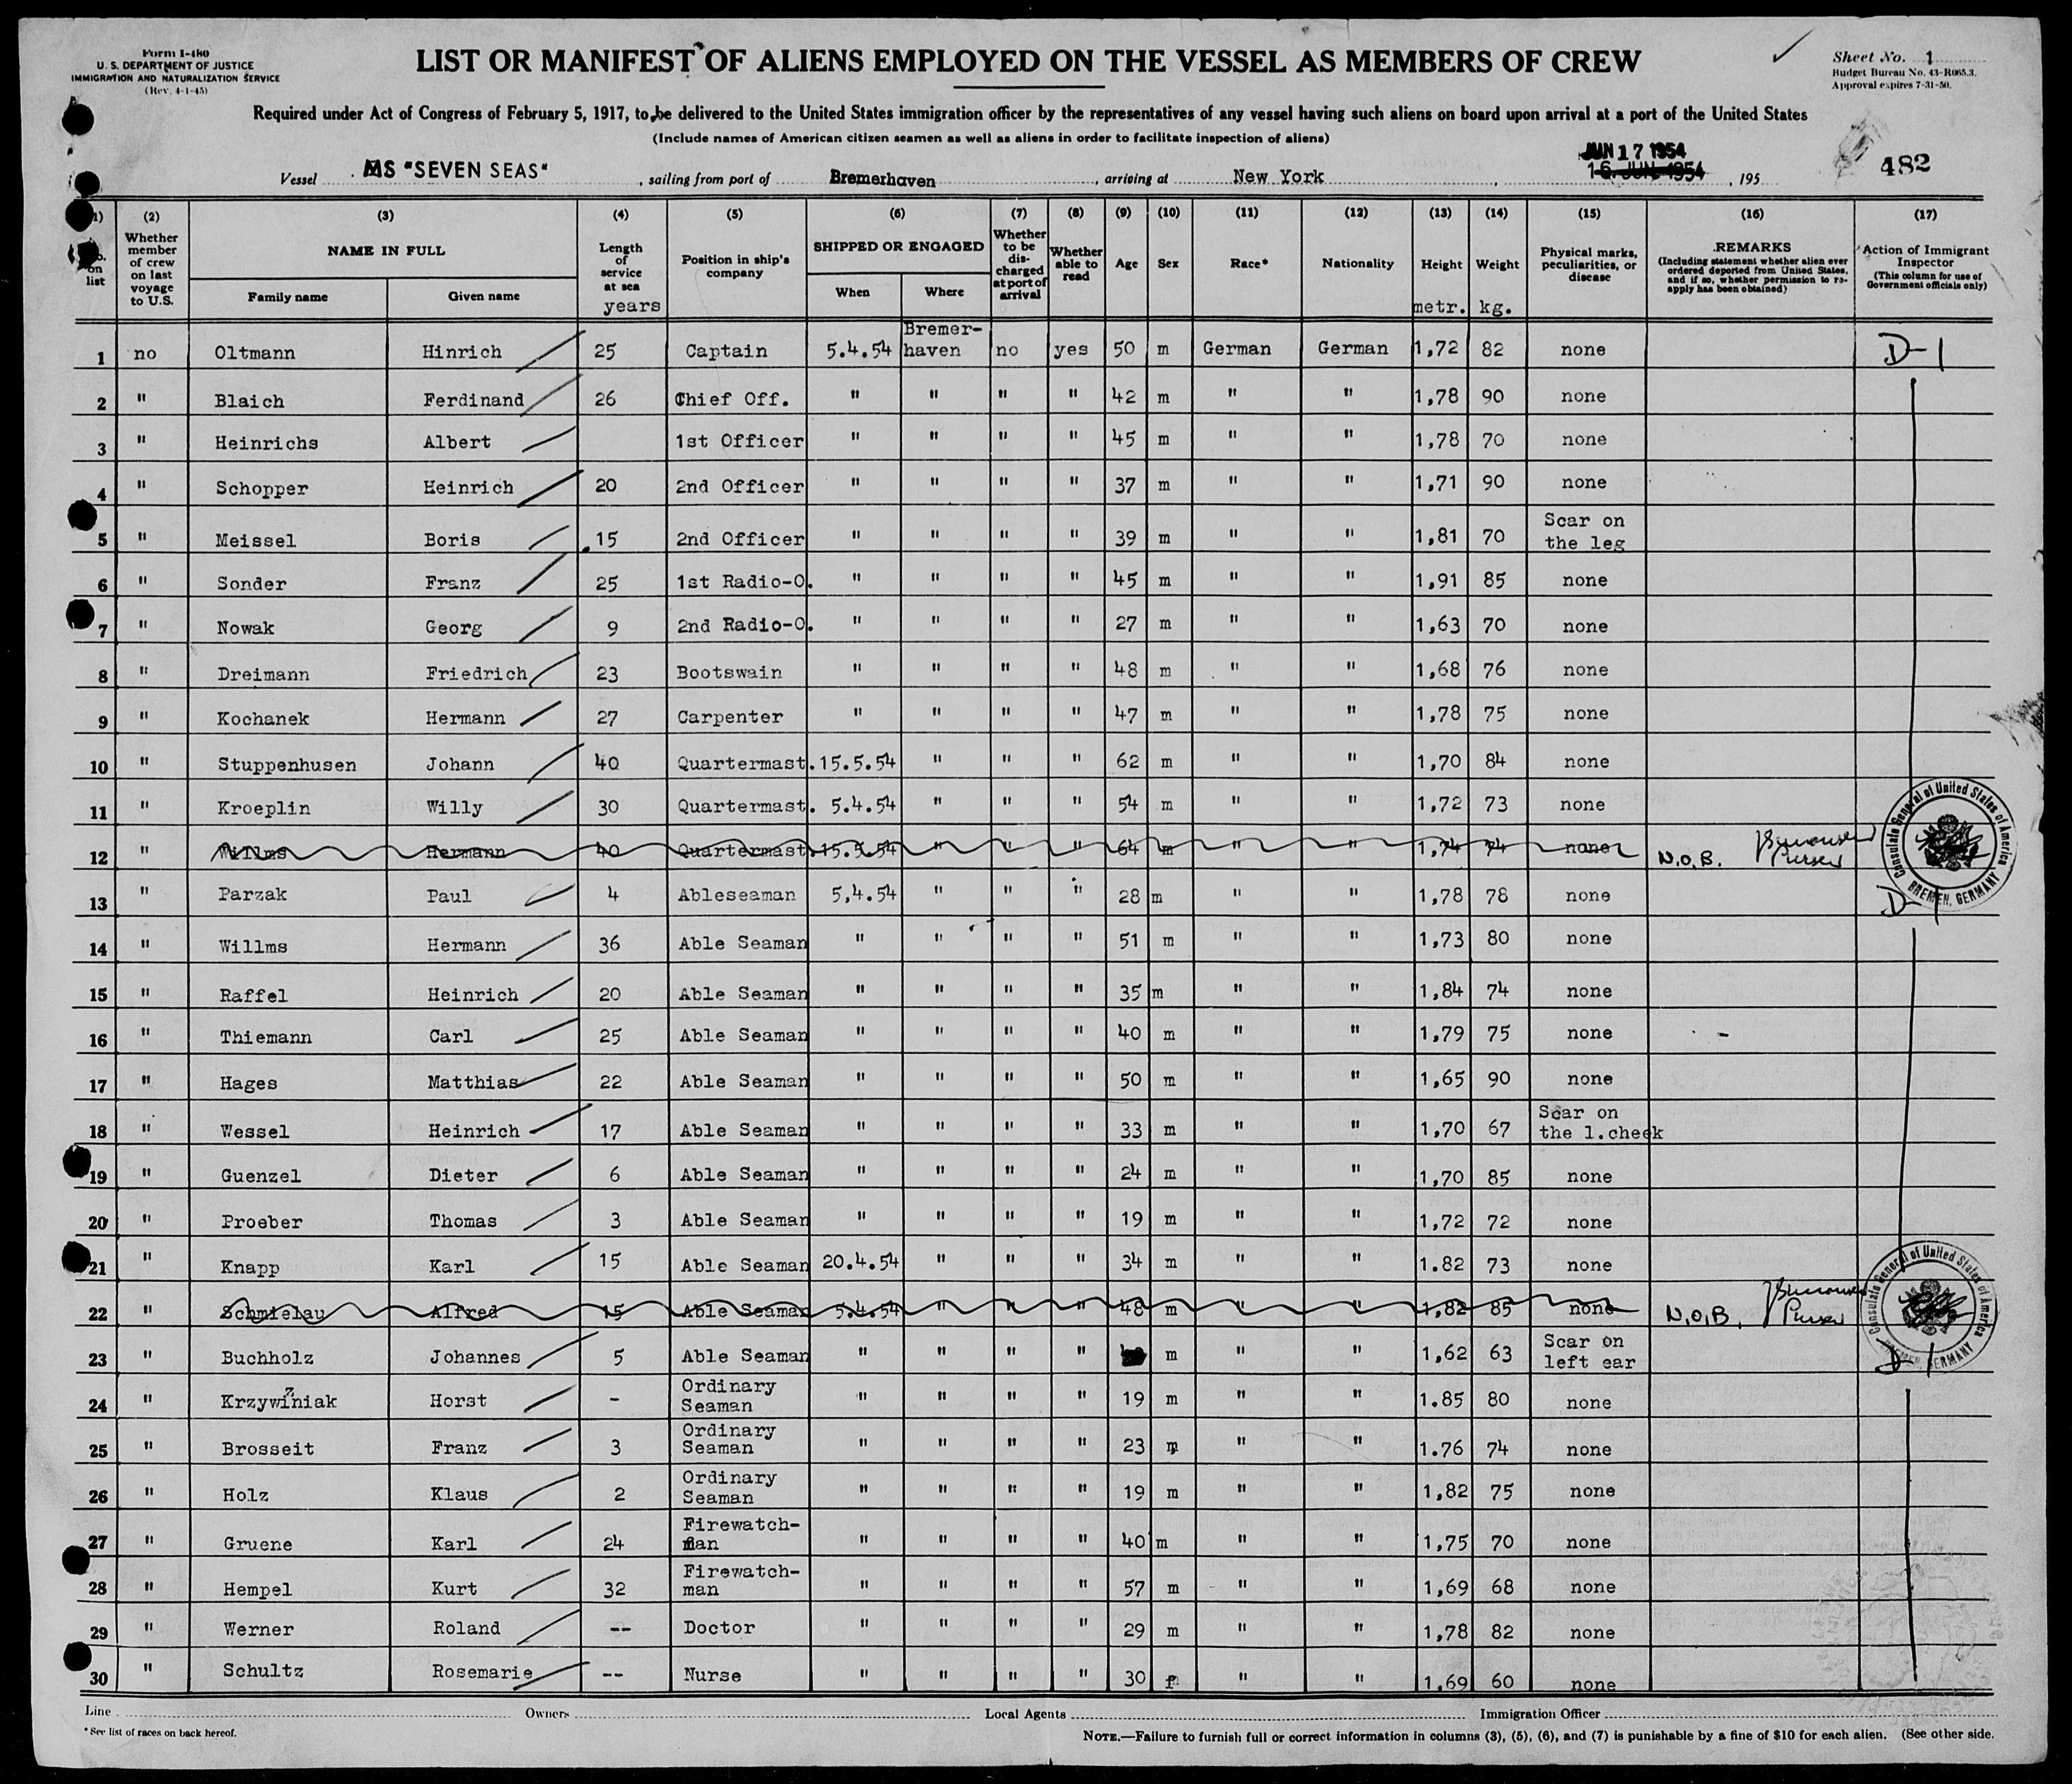 Form I-480
U. S. DEPARTMENT OF JUSTICE
IMMIGRATION AND NATURALIZATION SERVICE
(Rev. 4-1-45)
LIST OR MANIFEST OF ALIENS EMPLOYED ON THE VESSEL AS MEMBERS OF CREW
Sheet No. 1
Budget Bureau No. 43-R065.3.
Approval expires 7-31-50.
Required under Act of Congress of February 5, 1917, to be delivered to the United States immigration officer by the representatives of any vessel having such aliens on board upon arrival at a port of the United States
(Include names of American citizen seamen as well as aliens in order to facilitate inspection of aliens)
JUN 17 1954
Vessel MS "SEVEN SEAS", sailing from port of Bremerhaven, arriving at New York, 16. JUN 1954, 195
482
(1) (2) (3) (4) (5) (6) (7) (8) (9) (10) (11) (12) (13) (14) (15) (16) (17)
No. on list
Whether member of crew on last voyage to U.S.
NAME IN FULL
Family name
Given name
Length of service at sea
years
Position in ship's company
SHIPPED OR ENGAGED
When
Where
Whether to be discharged at port of arrival
Whether able to read
Age
Sex
Race*
Nationality
Height
metr.
Weight
kg.
Physical marks, peculiarities, or disease
REMARKS
(Including statement whether alien ever ordered deported from United States, and if so, whether permission to reapply has been obtained)
Action of Immigrant Inspector
(This column for use of Government officials only)
1 no Oltmann Hinrich 25 Captain 5.4.54 Bremer-haven no yes 50 m German German 1,72 82 none D-1
2 " Blaich Ferdinand 26 Chief Off. " " " " 42 m " " 1,78 90 none
3 " Heinrichs Albert 1st Officer " " " " 45 m " " 1,78 70 none
4 " Schopper Heinrich 20 2nd Officer " " " " 37 m " " 1,71 90 none
5 " Meissel Boris 15 2nd Officer " " " " 39 m " " 1,81 70 Scar on the leg
6 " Sonder Franz 25 1st Radio-O. " " " " 45 m " " 1,91 85 none
7 " Nowak Georg 9 2nd Radio-O. " " " " 27 m " " 1,63 70 none
8 " Dreimann Friedrich 23 Bootswain " " " " 48 m " " 1,68 76 none
9 " Kochanek Hermann 27 Carpenter " " " " 47 m " " 1,78 75 none
10 " Stuppenhusen Johann 40 Quartermast. 15.5.54 " " " 62 m " " 1,70 84 none
11 " Kroeplin Willy 30 Quartermast. 5.4.54 " " " 54 m " " 1,72 73 none
12 " Willms Hermann 40 Quartermast. 15.5.54 " " " 64 m " " 1,74 74 none N.O.B. Purser
Consulate General of United States of America
BREMEN, GERMANY
13 " Parzak Paul 4 Ableseaman 5,4.54 " " " 28 m " " 1,78 78 none D-1
14 " Willms Hermann 36 Able Seaman " " " " 51 m " " 1,73 80 none
15 " Raffel Heinrich 20 Able Seaman " " " " 35 m " " 1,84 74 none
16 " Thiemann Carl 25 Able Seaman " " " " 40 m " " 1,79 75 none -
17 " Hages Matthias 22 Able Seaman " " " " 50 m " " 1,65 90 none
18 " Wessel Heinrich 17 Able Seaman " " " " 33 m " " 1,70 67 Scar on the l.cheek
19 " Guenzel Dieter 6 Able Seaman " " " " 24 m " " 1,70 85 none
20 " Proeber Thomas 3 Able Seaman " " " " 19 m " " 1,72 72 none
21 " Knapp Karl 15 Able Seaman 20.4.54 " " " 34 m " " 1.82 73 none
22 " Schmielau Alfred 15 Able Seaman 5.4.54 " " " 48 m " " 1,82 85 none N.O.B. Purser
Consulate General of United States of America
BREMEN, GERMANY
23 " Buchholz Johannes 5 Able Seaman " " " " m " " 1,62 63 Scar on left ear D-1
24 " Krzywzniak Horst - Ordinary Seaman " " " " 19 m " " 1.85 80 none
25 " Brosseit Franz 3 Ordinary Seaman " " " " 23 m " " 1.76 74 none
26 " Holz Klaus 2 Ordinary Seaman " " " " 19 m " " 1,82 75 none
27 " Gruene Karl 24 Firewatch-man " " " " 40 m " " 1,75 70 none
28 " Hempel Kurt 32 Firewatch-man " " " " 57 m " " 1,69 68 none
29 " Werner Roland -- Doctor " " " " 29 m " " 1,78 82 none
30 " Schultz Rosemarie -- Nurse " " " " 30 f " " 1,69 60 none
Line Owners Local Agents Immigration Officer
*See list of races on back hereof.
NOTE.—Failure to furnish full or correct information in columns (3), (5), (6), and (7) is punishable by a fine of $10 for each alien. (See other side.